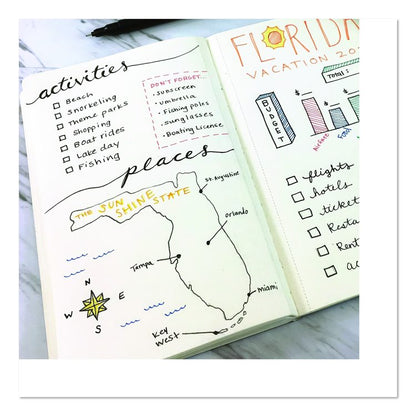 activities
Beach
Snorkeling
Theme parks
Shopping
Boat rides
Lake day
Fishing
DON'T FORGET...
Sunscreen
Umbrella
Fishing poles
Sunglasses
Boating License
places
THE SUN
SHINE STATE
St. Augustine
Orlando
Tampa
Miami
Key
West
N
W
E
S
FLORIDA
VACATION
Total:
BUDGET
$
Airfare
Food
flights
hotels
ticket
Resta
Rent